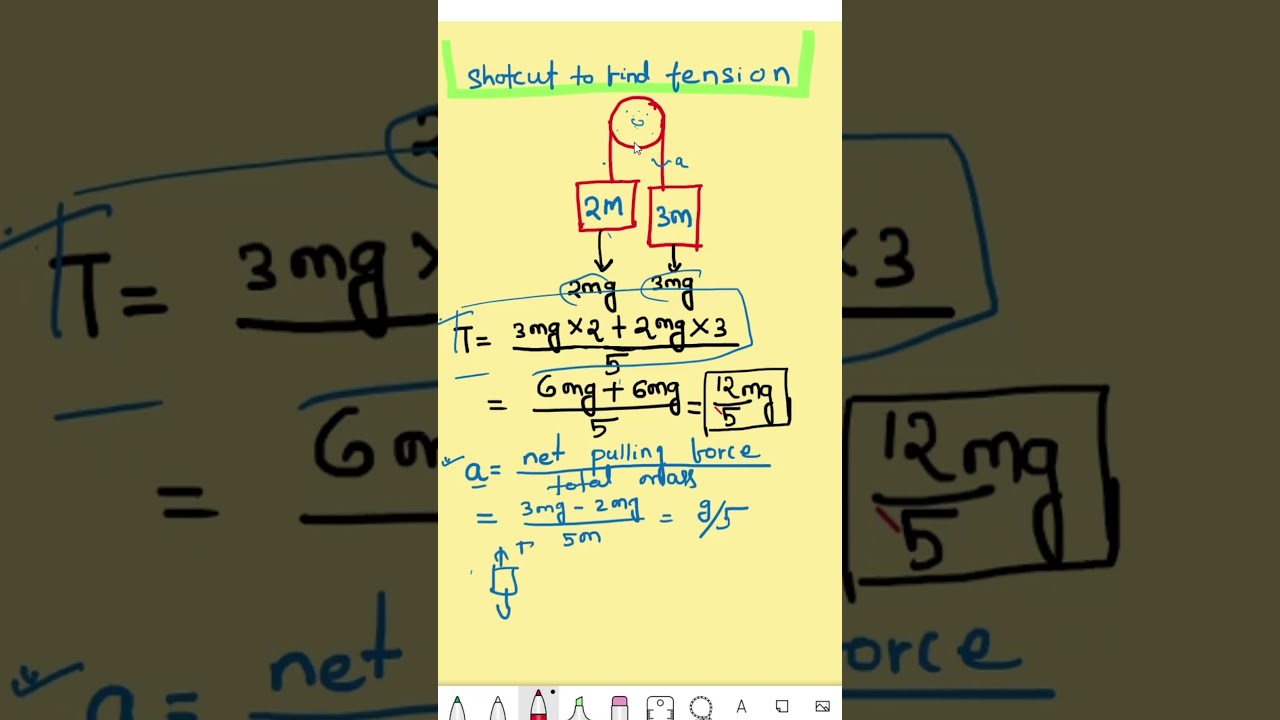 shotcut to find tension
a
2M 3m
2mg 3mg
T= 3mg×2+2mg×3/5
= 6mg+6mg/5 = 12mg/5
a= net pulling force/total mass
= 3mg-2mg/5m = g/5
T